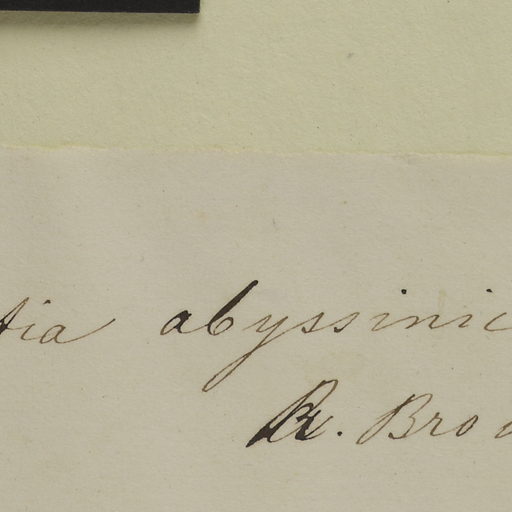 tia abyssinic
R. Bro